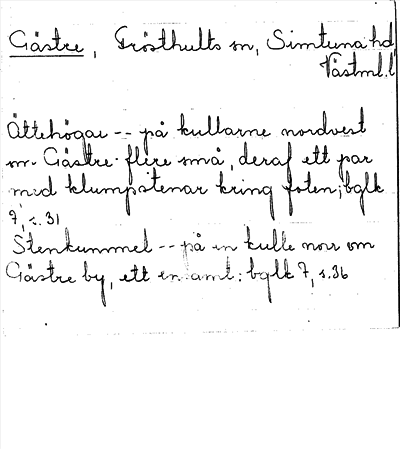 Gästre, Frösthults sn, Simtuna hd
Västml. l.
Ättehögar -- på kullarne nordvest
om Gästre flere små, deraf ett par
med klumpstenar kring foten; bglk
7, s. 31
Stenkummel -- på en kulle norr om
Gästre by, ett en aml: bglk 7, s. 36